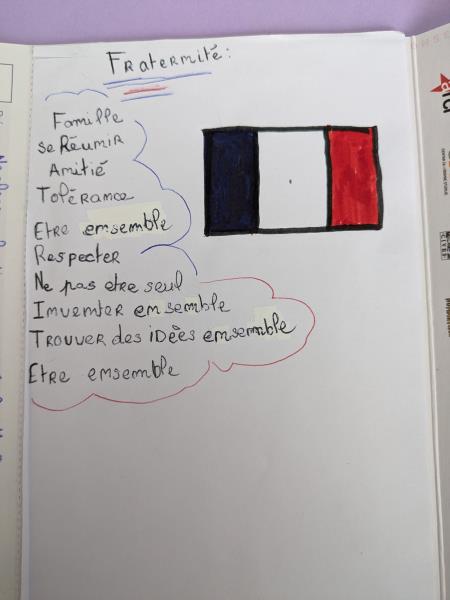 Fraternité:
Famille
se Réunir
Amitié
Tolérance
Etre ensemble
Respecter
Ne pas etre seul
Inventer ensemble
Trouver des idées ensemble
Etre ensemble